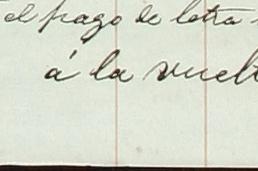 el pago de letra
á la vuelt